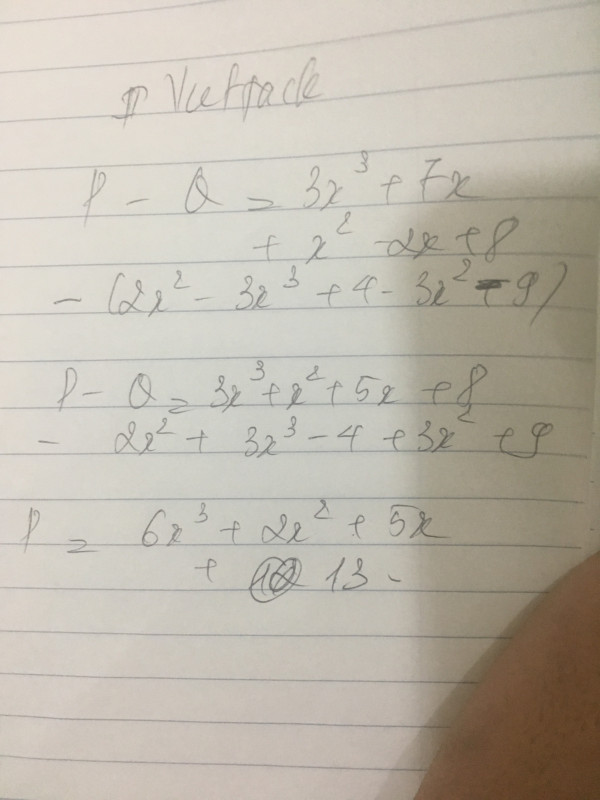 P - Q = 3x³ + 7x
+ x² - 2x + 8
- (2x² - 3x³ + 4 - 3x² - 9)
P - Q = 3x³ + x² + 5x + 8
- 2x² + 3x³ - 4 + 3x² + 9
P = 6x³ + 2x² + 5x
+ 13.